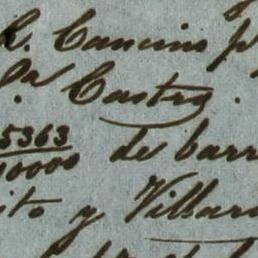 R. Cancino p
Da Castro.
5363
10000 de barr
ito y Villar